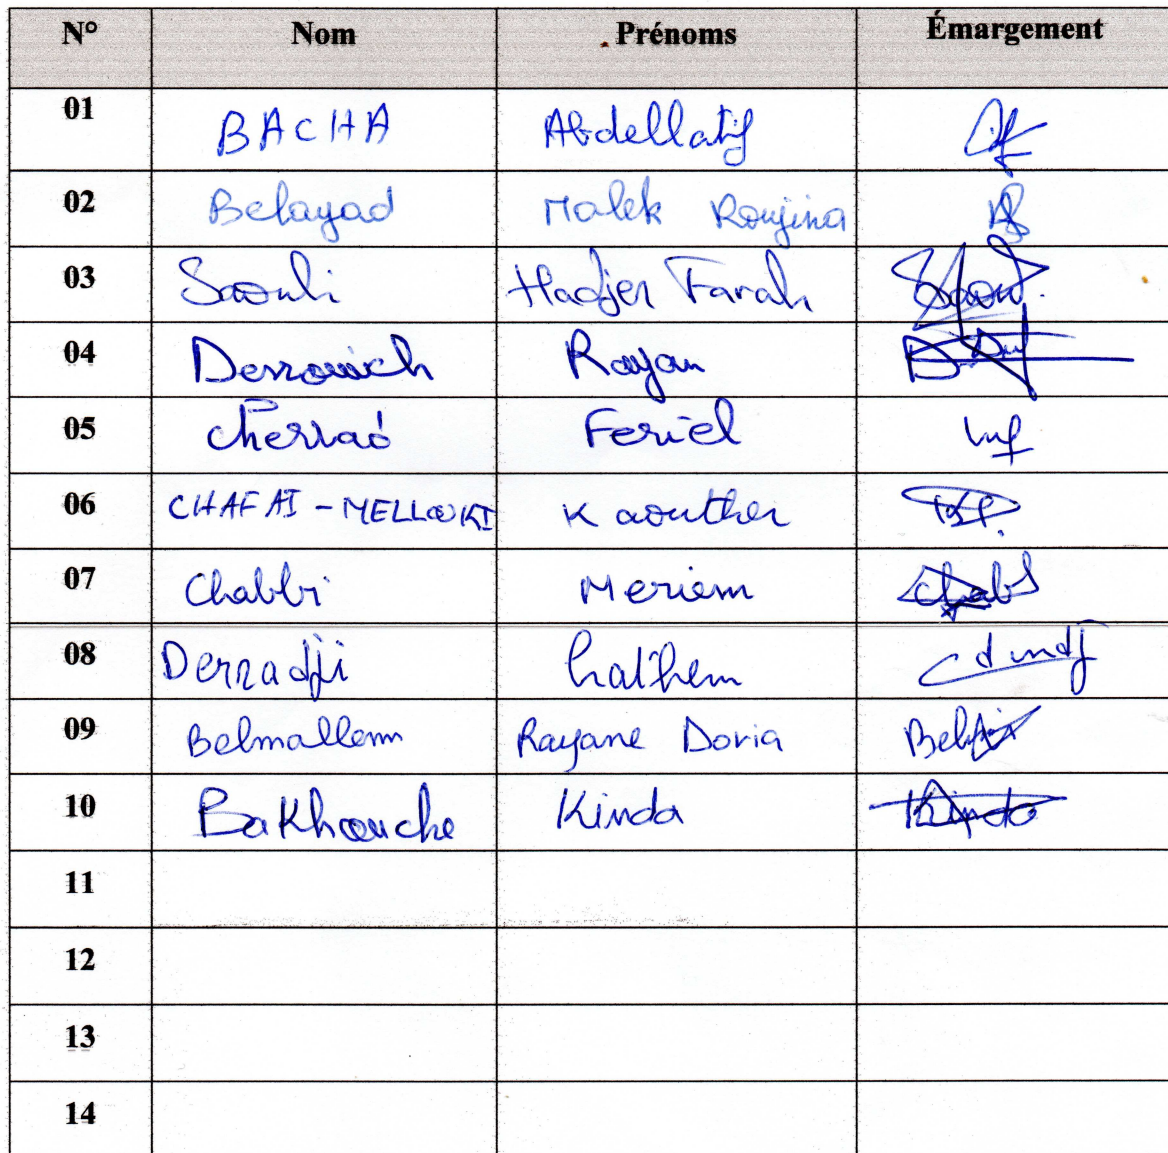 N° Nom Prénoms Émargement
01 BACHA Abdellatif
02 Belayad Malek Roujina
03 Saouli Hadjer Farah
04 Derrouich Rayan
05 Cherrad Feriel
06 CHAFAI - MELLOUKI Kaouther
07 Chabbi Meriem Chab
08 Derradji haithem
09 Belmallem Rayane Doria
10 Bakhouche Kinda Kinda
11
12
13
14